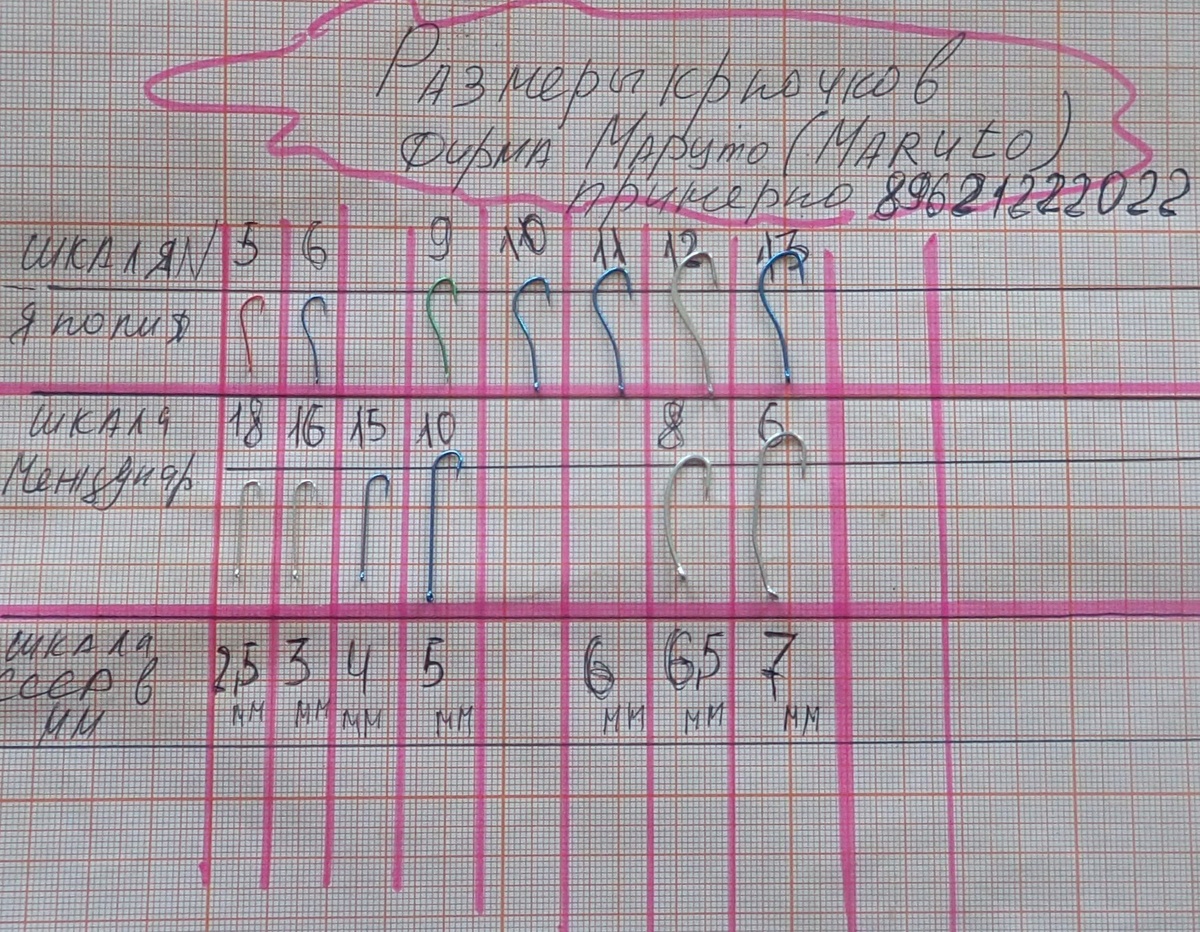 Размеры крючков
Фирма Маруто (Maruto)
примерно 89621222022
шкала яN 5 6 9 10 11 12 13
Япония
шкала 18 16 15 10 8 6
Междунар.
шкала 2,5 3 4 5 6 6,5 7
СССР в мм мм мм мм мм мм мм
мм